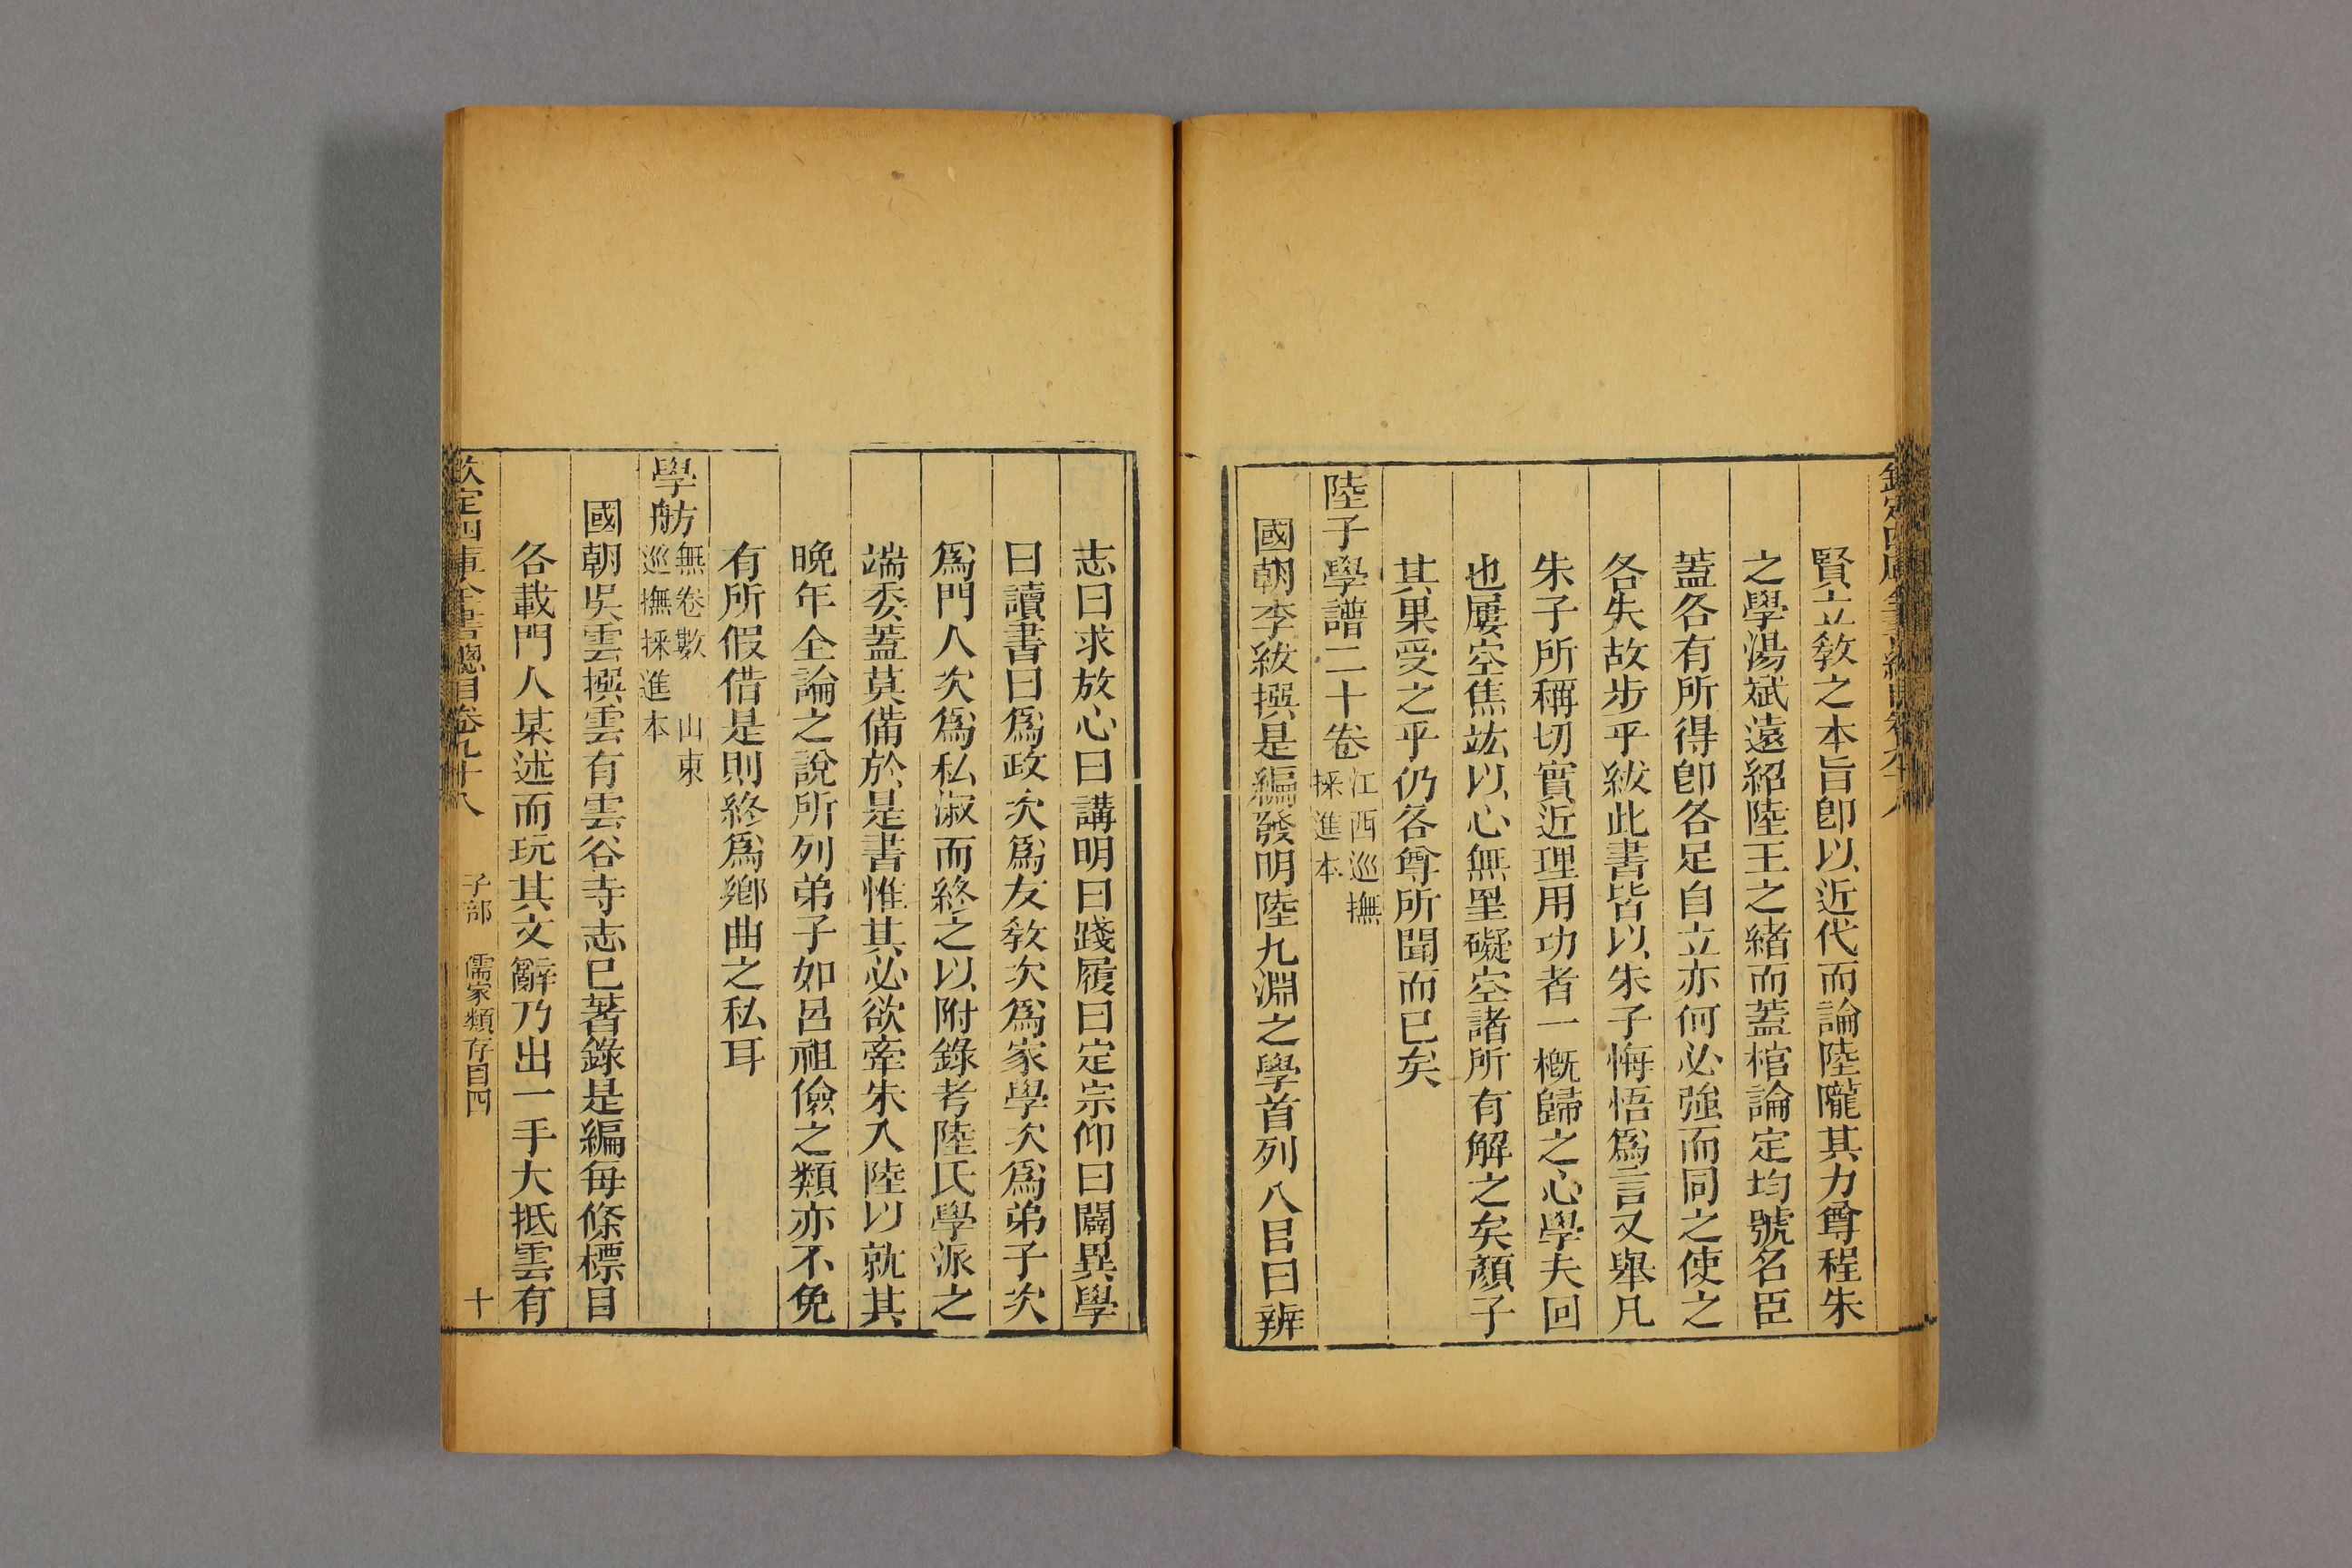 賢立教之本旨卽以近代而論陸隴其力尊程朱
之學湯斌遠紹陸王之緒而蓋棺論定均號名臣
蓋各有所得卽各足自立亦何必強而同之使之
各失故步乎紱此書皆以朱子悔悟爲言又舉凡
朱子所稱切實近理用功者一槪歸之心學夫回
也屢空焦竑以心無罣礙空諸所有解之矣顏子
其果受之乎仍各尊所聞而已矣
陸子學譜二十卷江西巡撫採進本
國朝李紱撰是編發明陸九淵之學首列八目曰辨
志曰求放心曰講明曰踐履曰定宗仰曰闢異學
曰讀書曰爲政次爲友教次爲家學次爲弟子次
爲門人次爲私淑而終之以附錄考陸氏學派之
端委蓋莫備於是書惟其必欲牽朱入陸以就其
晚年全論之說所列弟子如呂祖儉之類亦不免
有所假借是則終爲鄉曲之私耳
學舫無卷數 山東巡撫採進本
國朝吳雲撰雲有雲谷寺志已著錄是編每條標目
各載門人某述而玩其文辭乃出一手大抵雲有
欽定四庫全書總目卷九十八 子部 儒家類存目四 十